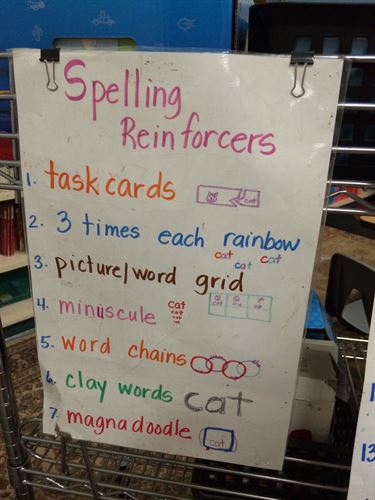 Spelling
Reinforcers
1. task cards cat
2. 3 times each rainbow
cat cat cat
3. picture/word grid
4. minuscule cat
cat
cat
5. word chains
6. clay words cat
7. magnadoodle cat
1
13